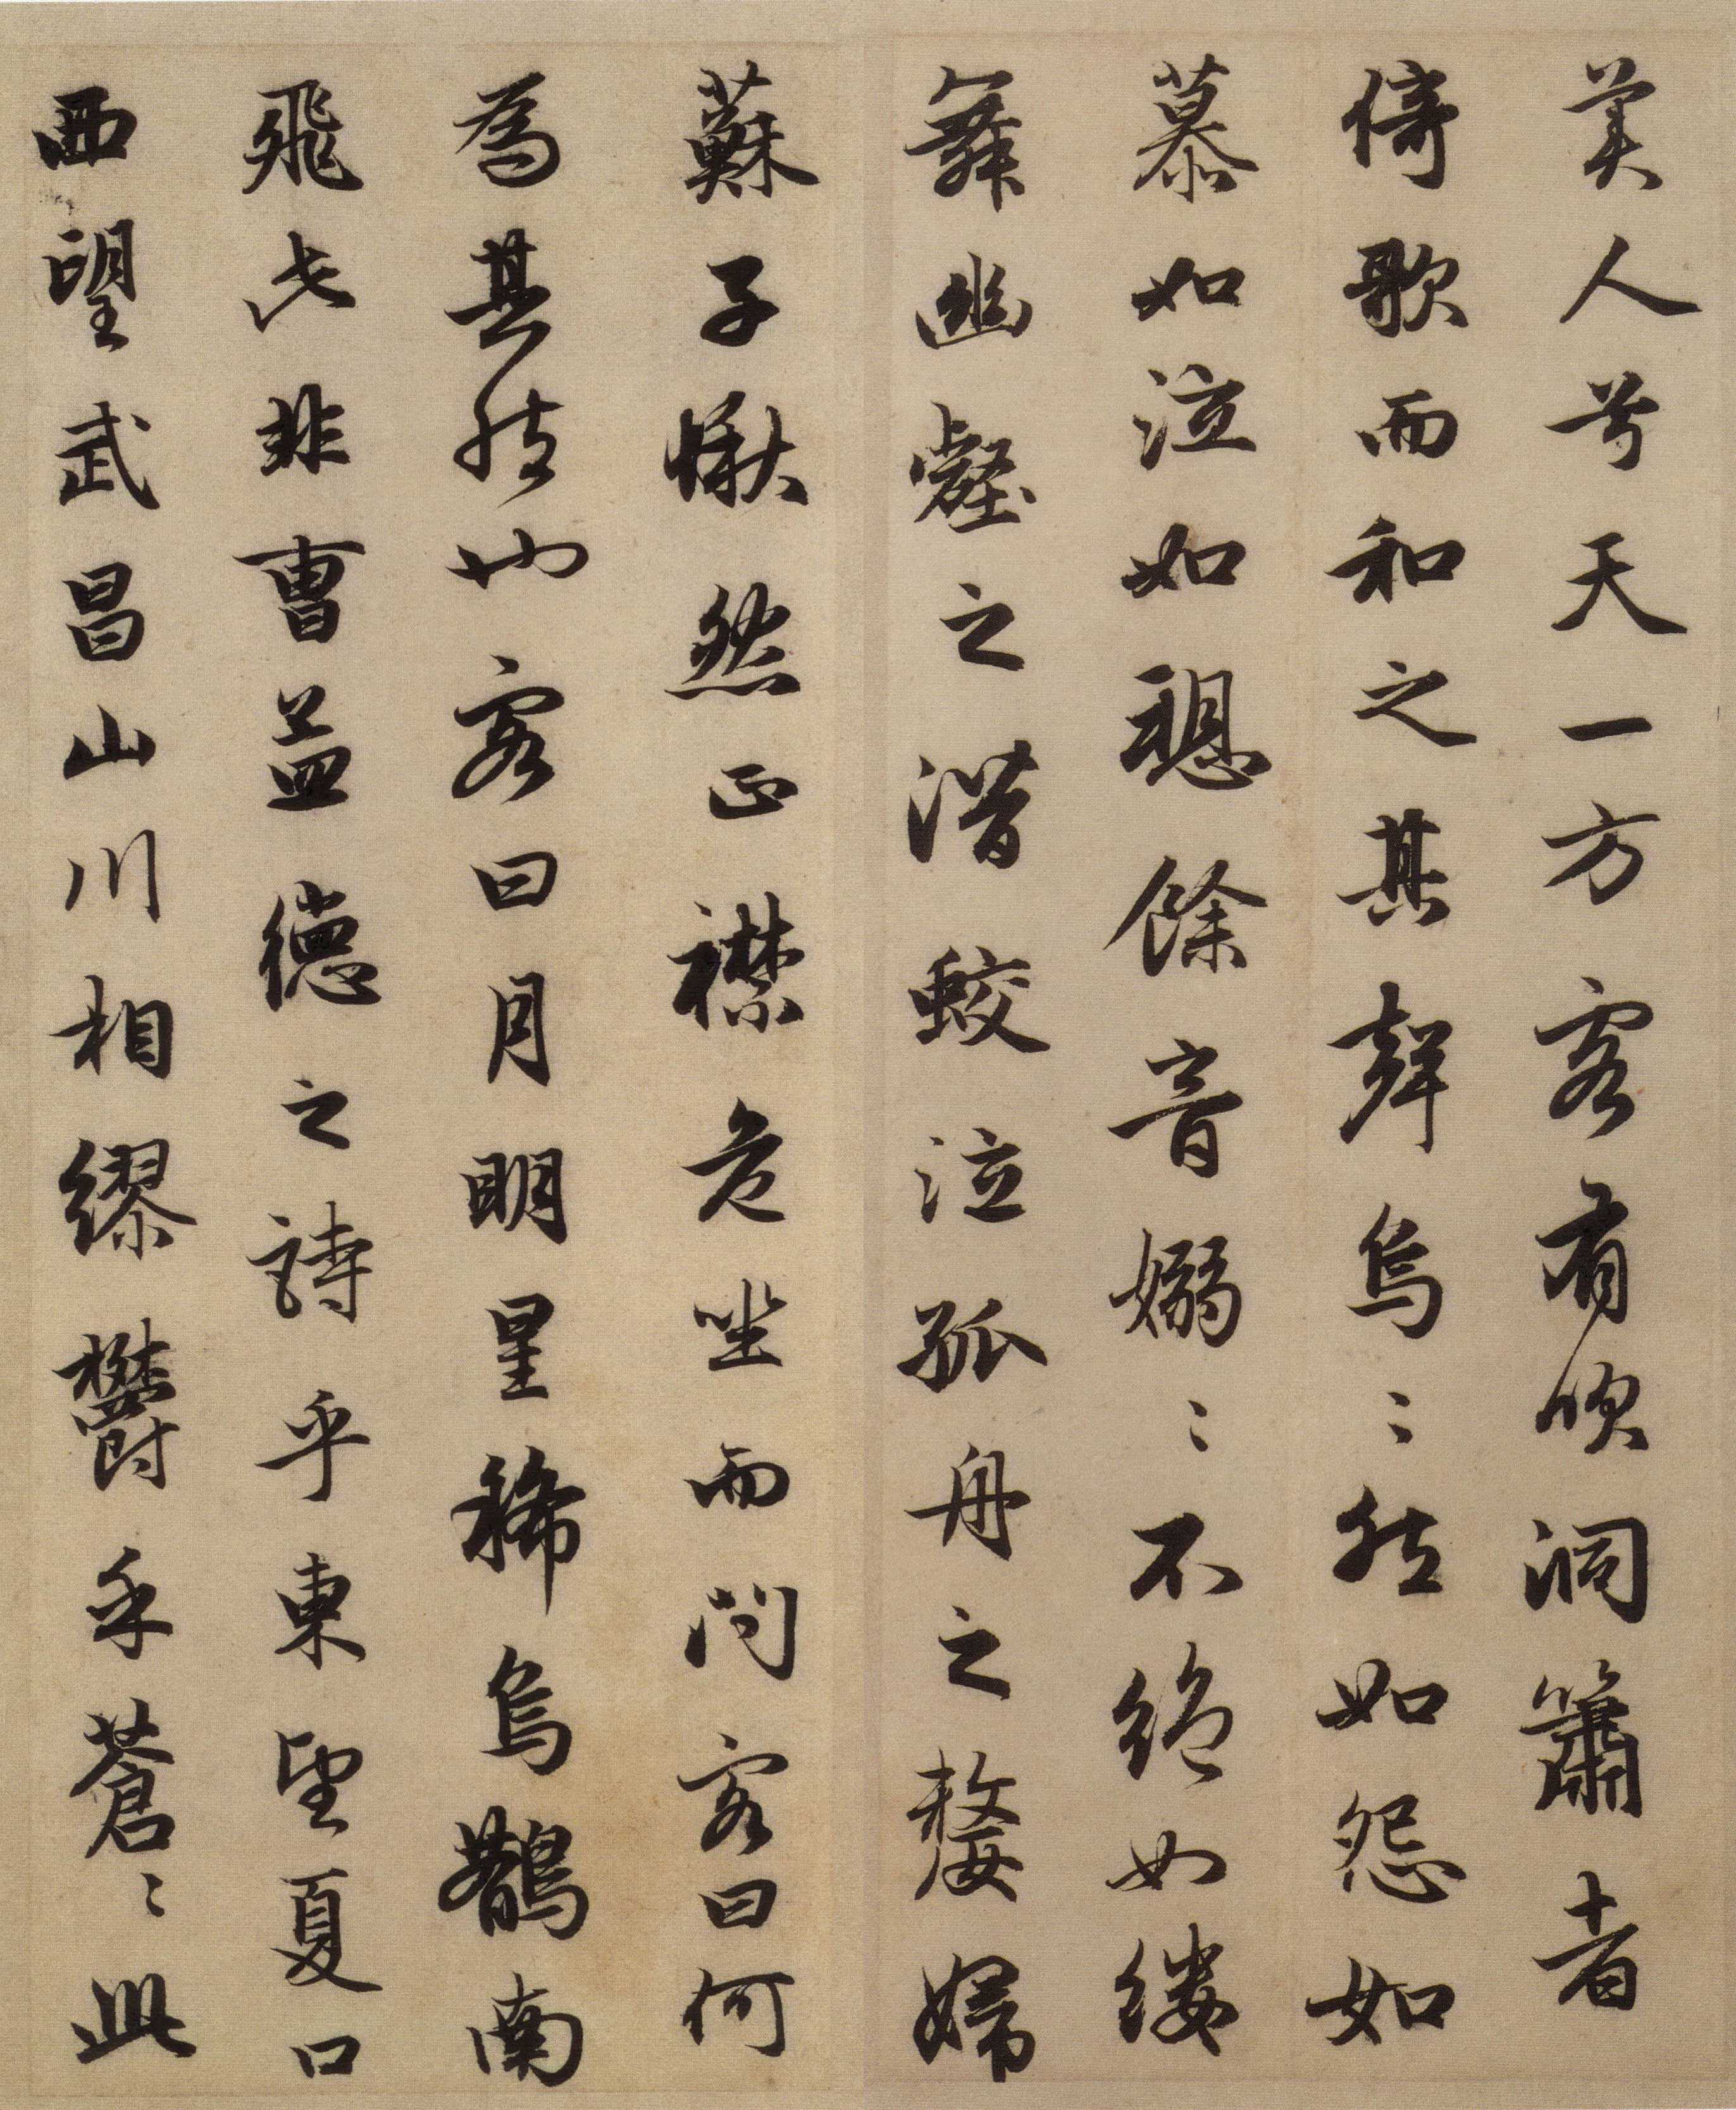 美人兮天一方客有吹洞簫者
倚歌而和之其聲烏〻然如怨如
慕如泣如愬餘音嫋〻不絕如縷
舞幽壑之潛蛟泣孤舟之嫠婦
蘇子愀然正襟危坐而問客曰何
為其然也客曰月明星稀烏鵲南
飛此非曹孟德之詩乎東望夏口
西望武昌山川相繆鬱乎蒼〻此